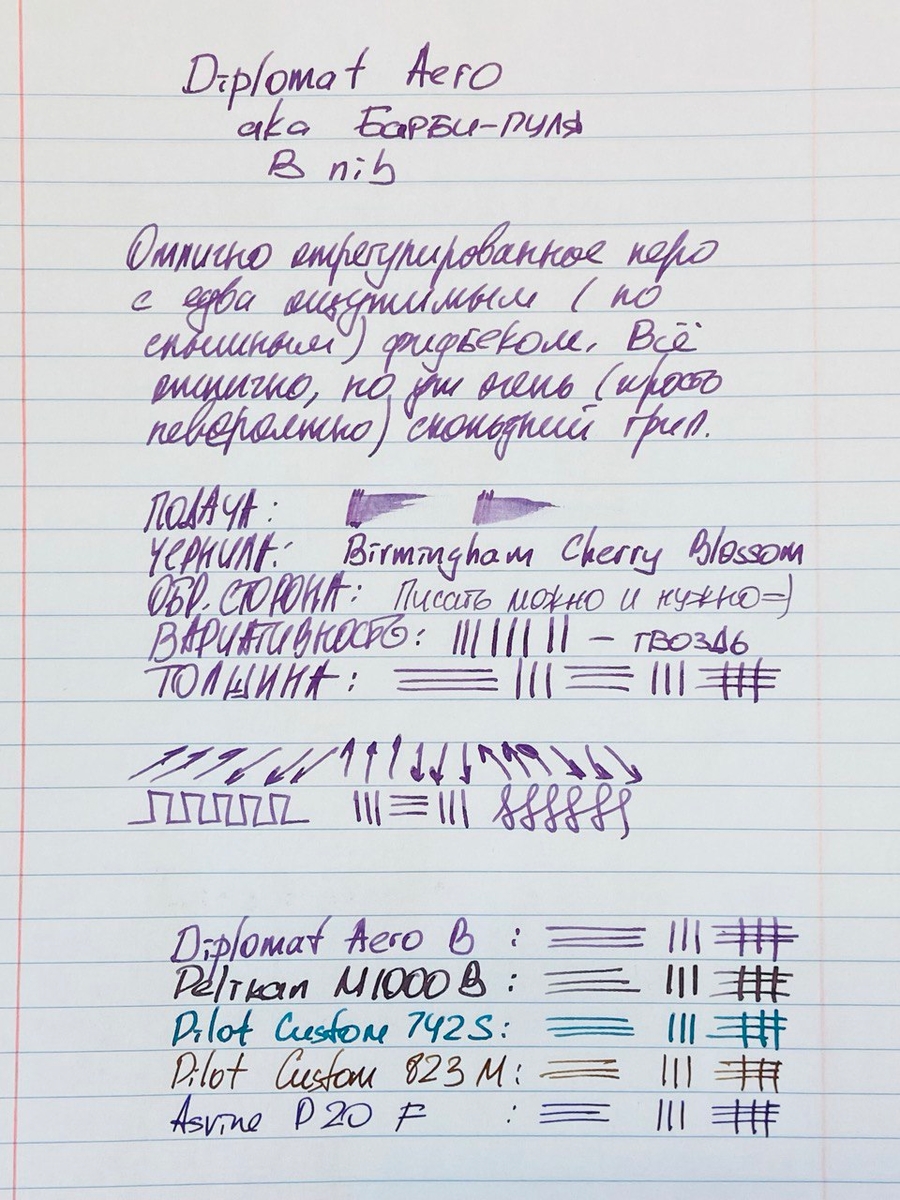 Diplomat Aero
aka Барби-пуля
B nib
Отлично отрегулированное перо
с едва ощутимым (но
слышимым) фидбеком. Всё
отлично, но уж очень (просто
невероятно) скользкий грип.
ПОДАЧА:
ЧЕРНИЛА: Birmingham Cherry Blossom
ОБР. СТОРОНА: Писать можно и нужно =)
ВАРИАТИВНОСТЬ: – ГВОЗДЬ
ТОЛЩИНА:
Diplomat Aero B :
Pelikan M1000 B :
Pilot Custom 742 S:
Pilot Custom 823 M:
Asvine P20 F :